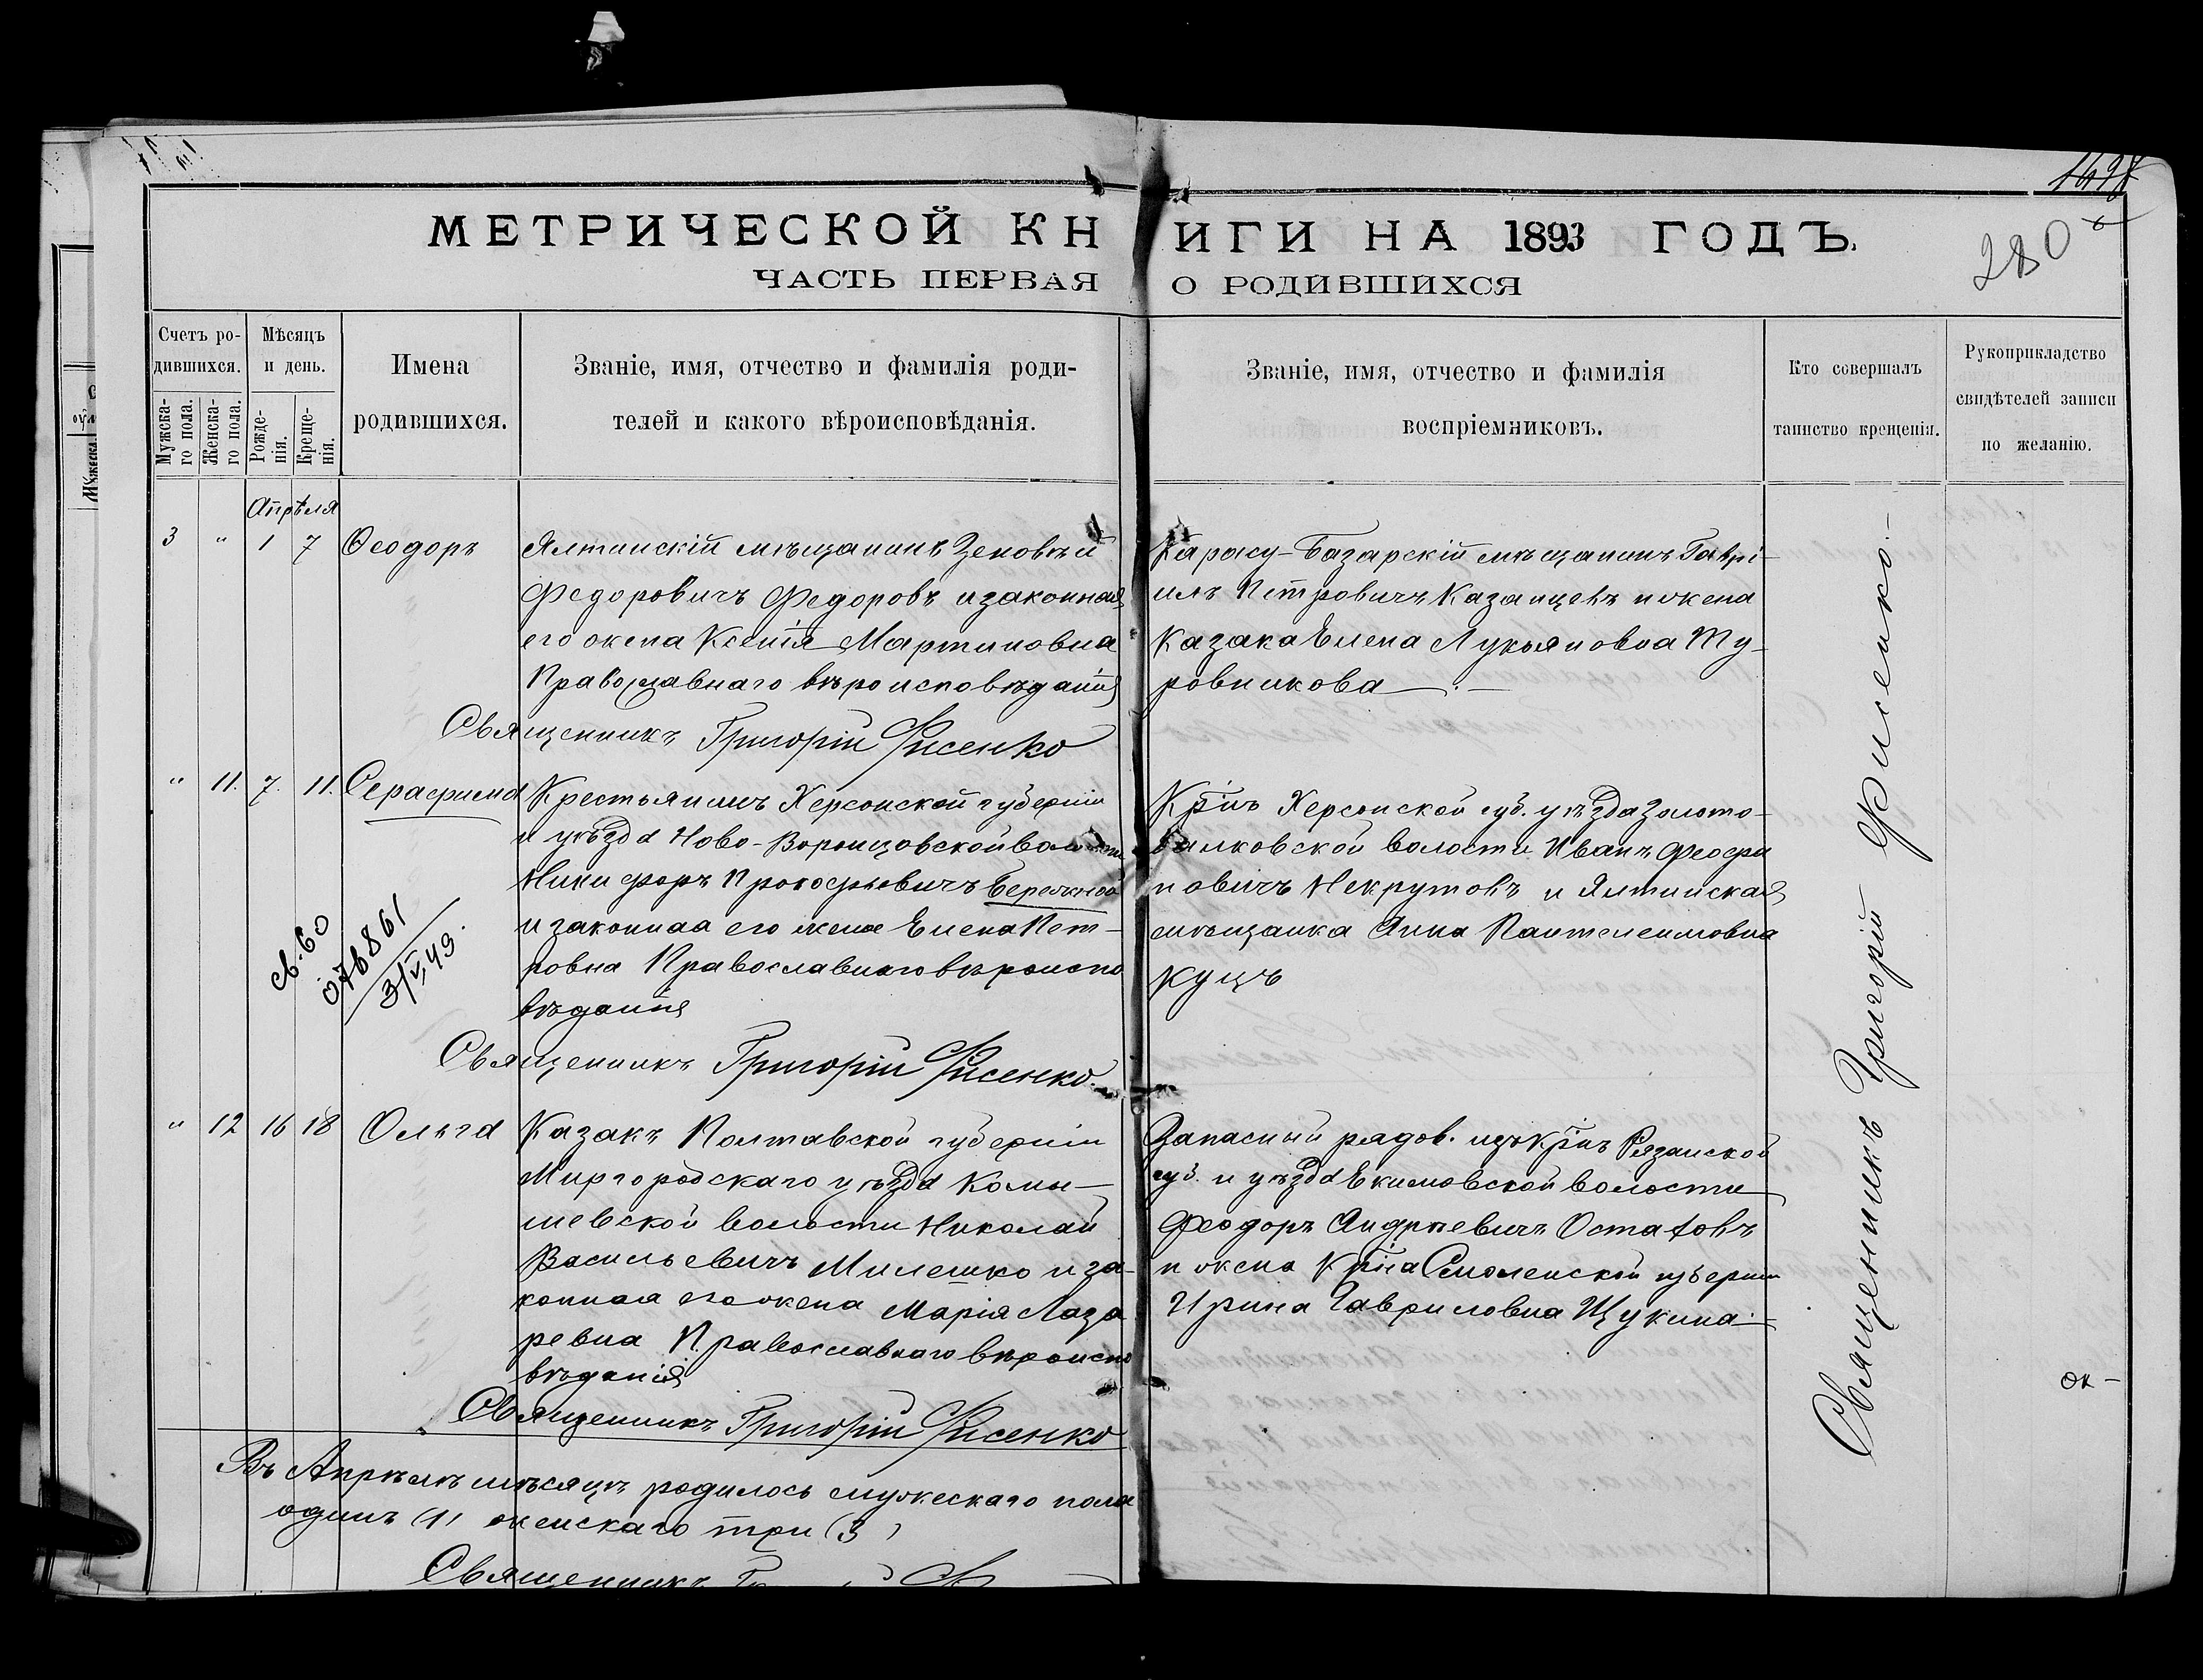 МЕТРИЧЕСКОЙ КНИГИ НА 1893 ГОДЪ.
ЧАСТЬ ПЕРВАЯ О РОДИВШИХСЯ
280
Счетъ ро-
дившихся.
Мужска-
го пола.
Женска-
го пола.
Мѣсяцъ
и день.
Рожде-
нія.
Креще-
нія.
Имена
родившихся.
Званіе, имя, отчество и фамилія роди-
телей и какого вѣроисповѣданія.
Званіе, имя, отчество и фамилія
воспріемниковъ.
Кто совершалъ
таинство крещенія.
Рукоприкладство
свидѣтелей записи
по желанію.
Апрѣля
3 " 1 7 Ѳеодоръ
Ялтинскій мѣщанинъ Зеновѣй
Федоровичъ Федоровъ и законная
его жена Ксенія Мартиновна
Православнаго вѣроисповѣданія
Священникъ Григорій Фисенко
Карасу-Базарскій мѣщанинъ Гаврі-
илъ Петровичъ Казанцевъ и жена
Казака Елена Лукьяновна Ту-
ровникова
" 11. 7. 11. Серафима
Крестьянинъ Херсонской губерніи
и уѣзда Ново-Воронцовской волости
Никифоръ Прокофьевичъ Бережной
и законная его жена Елена Пет-
ровна Православнаго вѣроиспо
вѣданія
Священникъ Григорій Фисенко
Крінъ Херсонской губ. уѣзда Золото-
балковской волости Иванъ Феофа
новичъ Некрутовъ и Ялтинская
мѣщанка Анна Пантелеимовна
Куцъ
св. 60
" 12 16 18 Ольга
Казакъ Полтавской губерніи
Миргородскаго уѣзда Комы-
шевской волости Николай
Васильевичъ Милешко и за-
конная его жена Марія Лаза
ревна Православнаго вѣроиспо
вѣданія
Священникъ Григорій Фисенко
Запасный рядов. изъ Крінъ Рязанской
губ. и уѣзда Екимовской волости
Феодоръ Андреевичъ Остатовъ
и жена Кріна Смоленской губерніи
Ирина Гавриловна Щукина
Священникъ Григорій Фисенко.
Въ Апрѣлѣ мѣсяцѣ родилось мужескаго пола
одинъ (1) женскаго три (3)
Священникъ